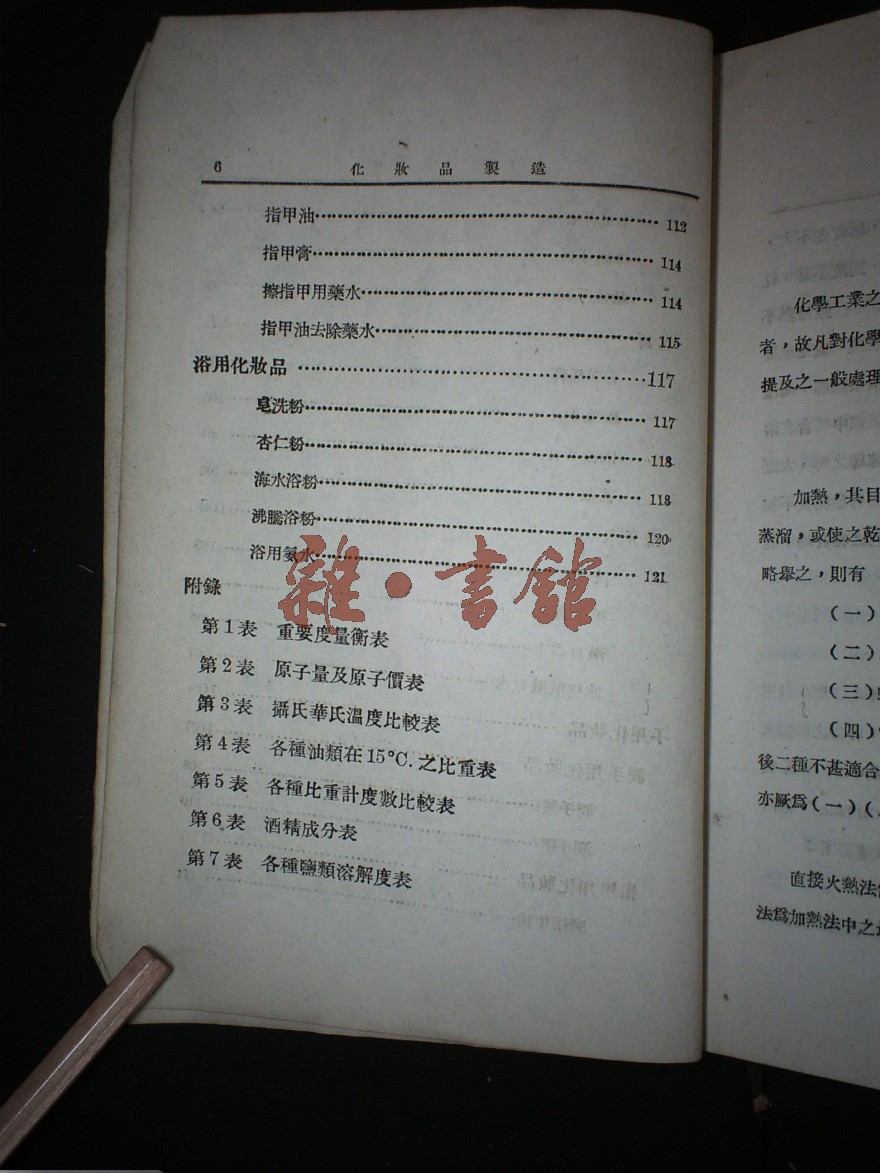 6 化妝品製造
指甲油 112
指甲膏 114
擦指甲用藥水 114
指甲油去除藥水 115
浴用化妝品 117
皂洗粉 117
杏仁粉 118
海水浴粉 118
沸騰浴粉 120
浴用氨水 121
附錄
第1表 重要度量衡表
第2表 原子量及原子價表
第3表 攝氏華氏溫度比較表
第4表 各種油類在15°C.之比重表
第5表 各種比重計度數比較表
第6表 酒精成分表
第7表 各種鹽類溶解度表
雜·書館
化學工業之
者，故凡對化學
提及之一般處理
加熱，其目
蒸溜，或使之乾
略舉之，則有
（一）
（二）
（三）
（四）
後二種不甚適合
亦厥爲（一）（
直接火熱法
法爲加熱法中之